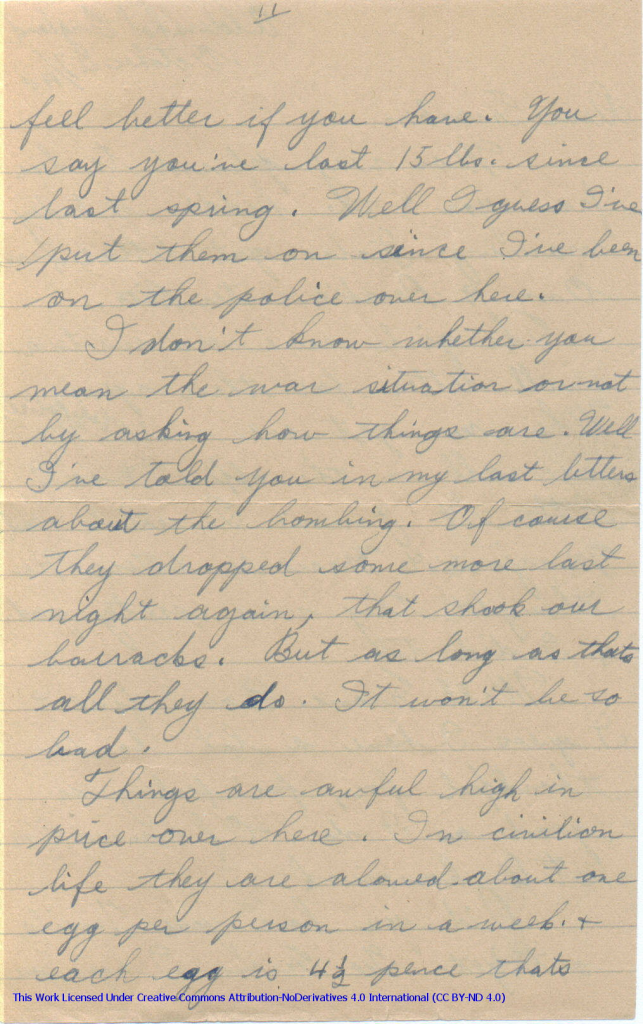 11
feel better if you have. You
say you've lost 15 lbs. since
last spring. Well I guess I've
put them on since I've been
on the police over here.
I don't know whether you
mean the war situation or not
by asking how things are. Well
I've told you in my last letters
about the bombing. Of couise
they dropped some more last
night again, that shook our
barracks. But as long as thats
all they do. It won't be so
bad.
Things are awful high in
price over here. In civilion
life they are alowed about one
egg per person in a week. +
each egg is 4½ pence thats
This Work Licensed Under Creative Commons Attribution-NoDerivatives 4.0 International (CC BY-ND 4.0)